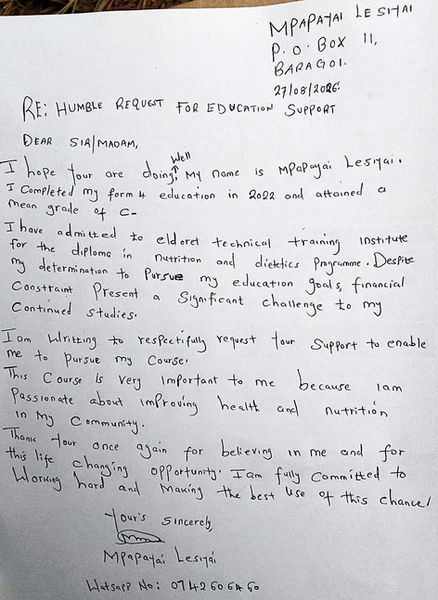 MPAPAYAI LESIYAI
P.O. BOX 11,
BARAGOI.
27/08/2026.
RE: HUMBLE REQUEST FOR EDUCATION SUPPORT
DEAR SIR/MADAM,
I hope your are doing, well My name is Mpapayai Lesiyai.
I completed my form 4 education in 2022 and attained a
mean grade of C-
I have admitted to eldoret technical training institute
for the diploma in nutrition and dietetics programme. Despite
my determination to pursue my education goals, financial
Constraint present a Significant challenge to my
Continued studies.
I am writting to respectifully request your Support to enable
me to pursue my Course.
This Course is very important to me because iam
Passionate about improving health and nutrition
in my Community.
Thank your once again for believing in me and for
this life changing opportunity. I am fully Committed to
Working hard and making the best use of this chance!
Your's Sincerely,
Mpapayai Lesiyai
Watsapp No: 0742606460